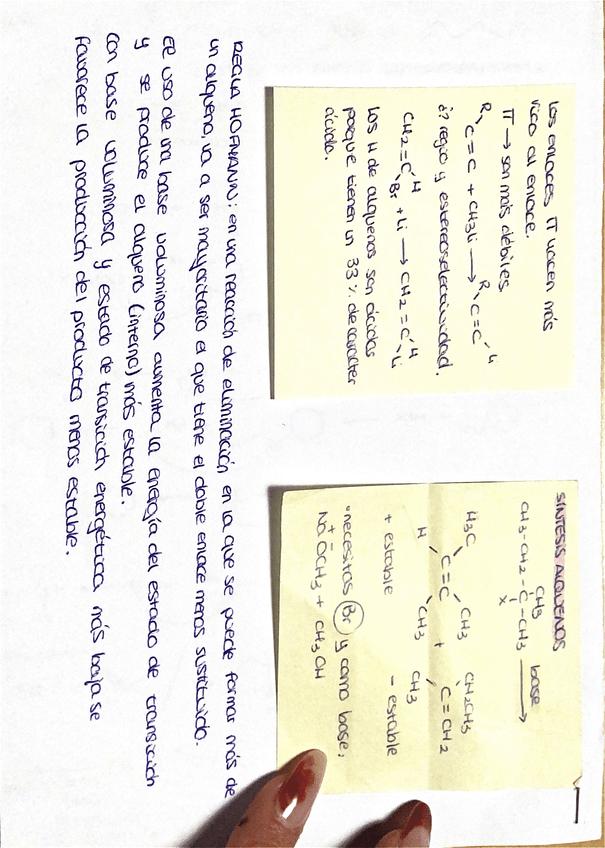 Los enlaces π hacen más
rico al enlace.
π → son más débiles
R\ C=C + CH3Li → R\ C=C /Li
¿? regio y estereoselectividad.
CH2=C /H \Br + Li → CH2=C /H \Li
Los H de alquenos son ácidos
porque tienen un 33% de carácter
ácido.
SÍNTESIS ALQUENOS
CH3
CH3-CH2-C-CH3 base →
X
H3C CH3 CH2CH3
C=C + C=CH2
H CH3 CH3
+ estable - estable
*necesitas Br y como base:
+ -
Na OCH3 + CH3OH
REGLA HOFMANN: en una reacción de eliminación en la que se puede formar más de
un alqueno, va a ser mayoritario el que tiene el doble enlace menos sustituido.
El uso de una base voluminosa aumenta la energía del estado de transición
y se produce el alqueno (interno) más estable.
Con base voluminosa y estado de transición energética más baja se
favorece la producción del producto menos estable.